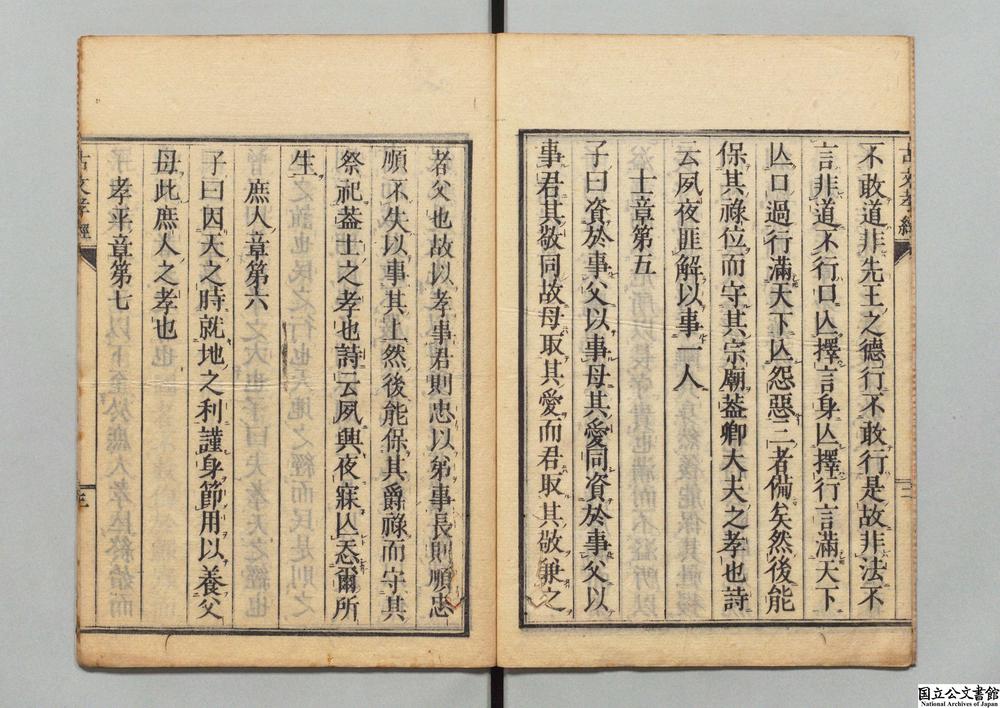 不敢道非先王之德行不敢行是故非法不
言非道不行口亾擇言身亾擇行言滿天下
亾口過行滿天下亾怨惡三者備矣然後能
保其祿位而守其宗廟葢卿大夫之孝也詩
云夙夜匪解以事一人
士章第五
子曰資於事父以事母其愛同資於事父以
事君其敬同故母取其愛而君取其敬兼之
者父也故以孝事君則忠以弟事長則順忠
順不失以事其上然後能保其爵祿而守其
祭祀葢士之孝也詩云夙興夜寐亾忝爾所
生
庶人章第六
子曰因天之時就地之利謹身節用以養父
母此庶人之孝也
孝平章第七
古文孝經
三
国立公文書館
National Archives of Japan